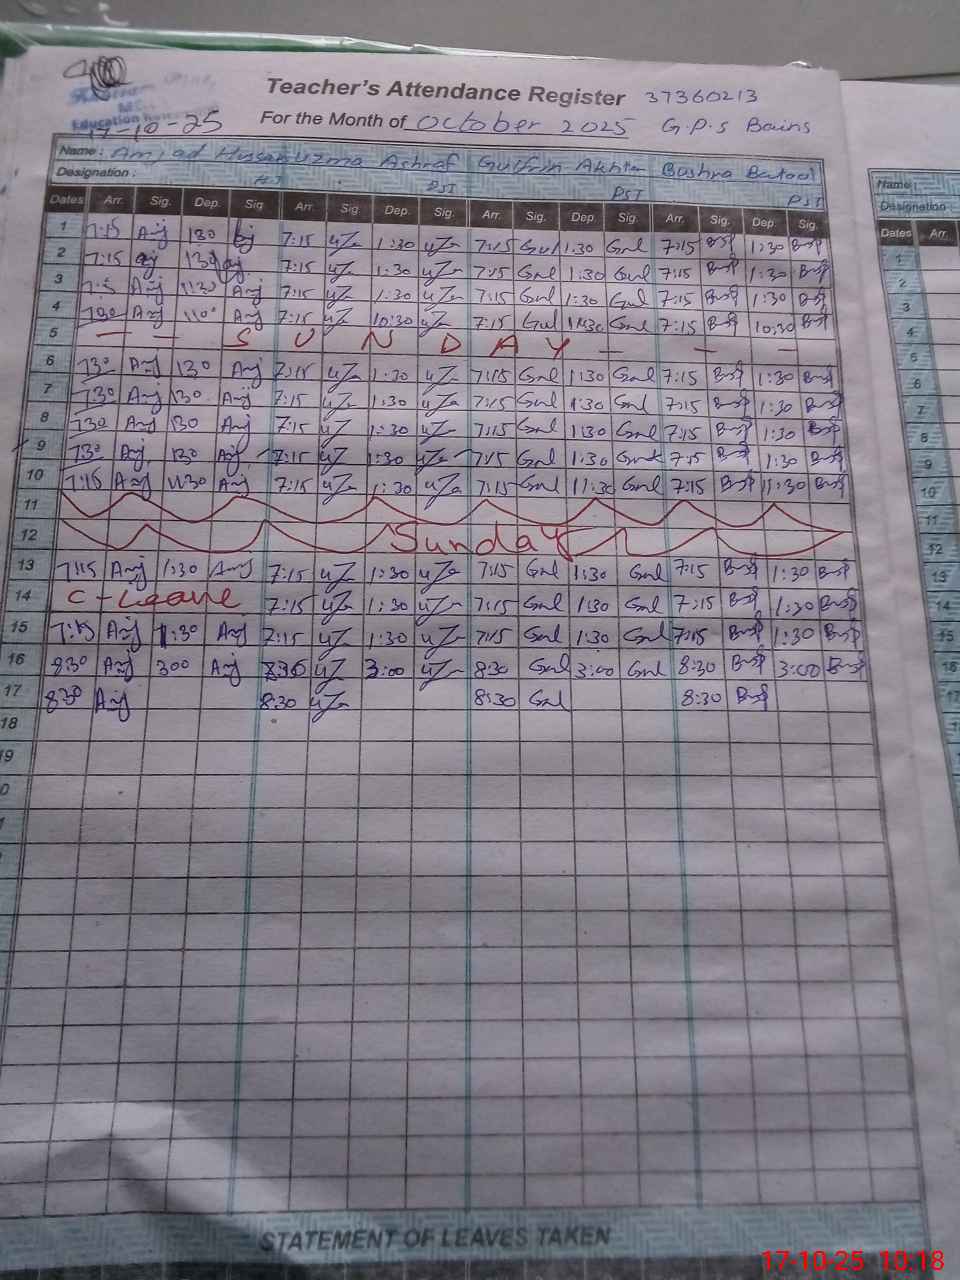 Teacher's Attendance Register 37360213
Education
17-10-25 For the Month of October 2025 G.P.S Bains
Name: Amjad Hussain Uzma Ashraf Gulfrin Akhtar Bushra Batool
Designation: PST PST PST
Dates Arr. Sig. Dep. Sig Arr. Sig. Dep. Sig. Arr. Sig. Dep. Sig. Arr. Sig. Dep. Sig.
1 7:15 Amj 130 7:15 uZa 1:30 uZa 7:15 Gul 1:30 Gul 7:15 1:30
2 7:15 130 7:15 uZa 1:30 uZa 7:15 Gul 1:30 Gul 7:15 1:30
3 Amj 1130 Amj 7:15 uZa 1:30 uZa 7:15 Gul 1:30 Gul 7:15 1:30
4 730 Amj Amj 7:15 uZa 10:30 uZa 7:15 Gul Gul 7:15 10:30
5 — — S U N D A Y — — —
6 730 Amj 130 Amj 7:15 uZ 1:30 uZa 7:15 Gul 1:30 Gul 7:15 1:30
7 730 Amj 130 Amj 7:15 uZ 1:30 uZa 7:15 Gul 1:30 Gul 7:15 1:30
8 730 Amj 130 Amj 7:15 uZ 1:30 uZa 7:15 Gul 1:30 Gul 7:15 1:30
9 730 Amj 130 Amj 7:15 uZ 1:30 uZa 7:15 Gul 1:30 Gul 7:15 1:30
10 7:15 Amj 11:30 Amj 7:15 uZa 1:30 uZa 7:15 Gul 11:30 Gul 7:15 11:30
11
12 Sunday
13 7:15 Amj 1:30 Amj 7:15 uZ 1:30 uZa 7:15 Gul 1:30 Gul 7:15 1:30
14 C-Leave 7:15 uZ 1:30 uZa 7:15 Gul 1:30 Gul 7:15 1:30
15 7:15 Amj 1:30 Amj 7:15 uZ 1:30 uZa 7:15 Gul 1:30 Gul 7:15 1:30
16 830 Amj 300 Amj 8:30 uZ 3:00 uZa 8:30 Gul 3:00 Gul 8:30 3:00
17 830 Amj 8:30 uZa 8:30 Gul 8:30
18
19
STATEMENT OF LEAVES TAKEN
Name:
Designation
Dates Arr.
1
2
3
4
5
6
7
8
9
10
11
12
13
14
15
16
17
17-10-25 10:18